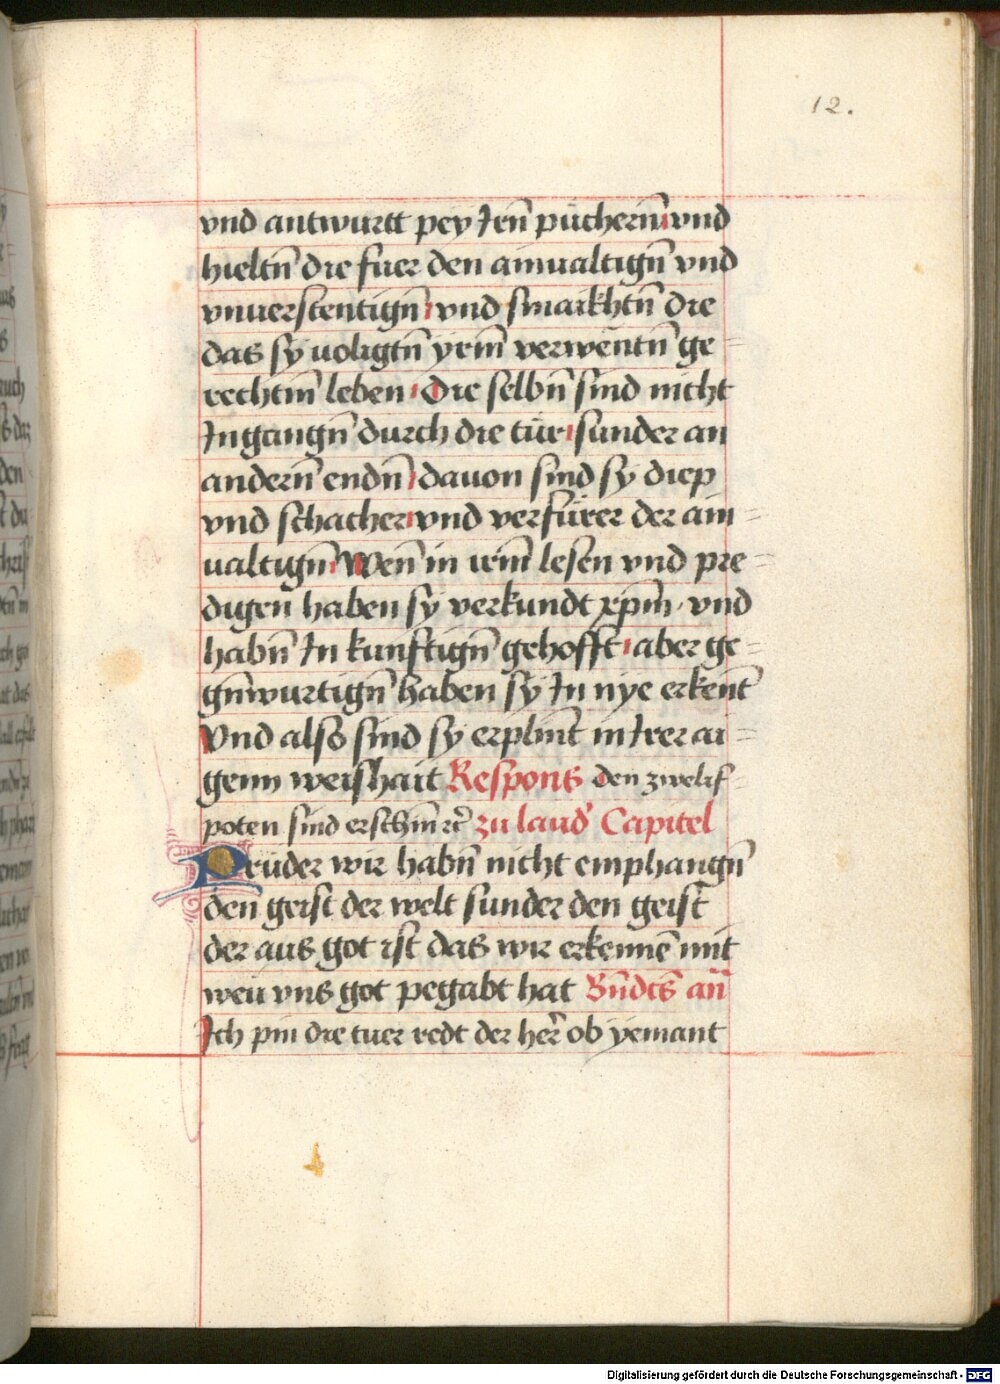 12.
vnd antwurtt pey Jren̄ pücherin̄ vnd
hieltn̄ die fuer den ainualtign̄ vnd
vnuerstentign̄ vnd smaikhtn̄ die
das sy uoligtn̄ yrem̄ verwentn̄ ge=
rechtm̄ leben Die selbn̄ sind nicht
Jngangn̄ durch die tür sunder an
andern̄ endn̄ dauon sind sy diep
vnd schacher vnd verfürer der ain=
ualtign̄ Wen̄ in irm̄ lesen vnd pre=
digen haben sy verkundt xp̄m vnd
habn̄ Jn kunftign̄ gehofft aber ge=
gn̄wurtign̄ haben sy Jn nye erken̄t
Vnd also sind sy erplint̄ in Jrer ai=
genn weishait Respons den zwelif
poten sind erschin̄ rc̄ zu laud' Capitel
Prüder wir habn̄ nicht emphangn̄
den geist der welt sunder den geist
der aus got ist das wir erkennē mit
weu vns got pegabt hat Bn̄dcs̄ an̄
Ich pin die tuer redt der her̄ ob yemant
Digitalisierung gefördert durch die Deutsche Forschungsgemeinschaft - DFG